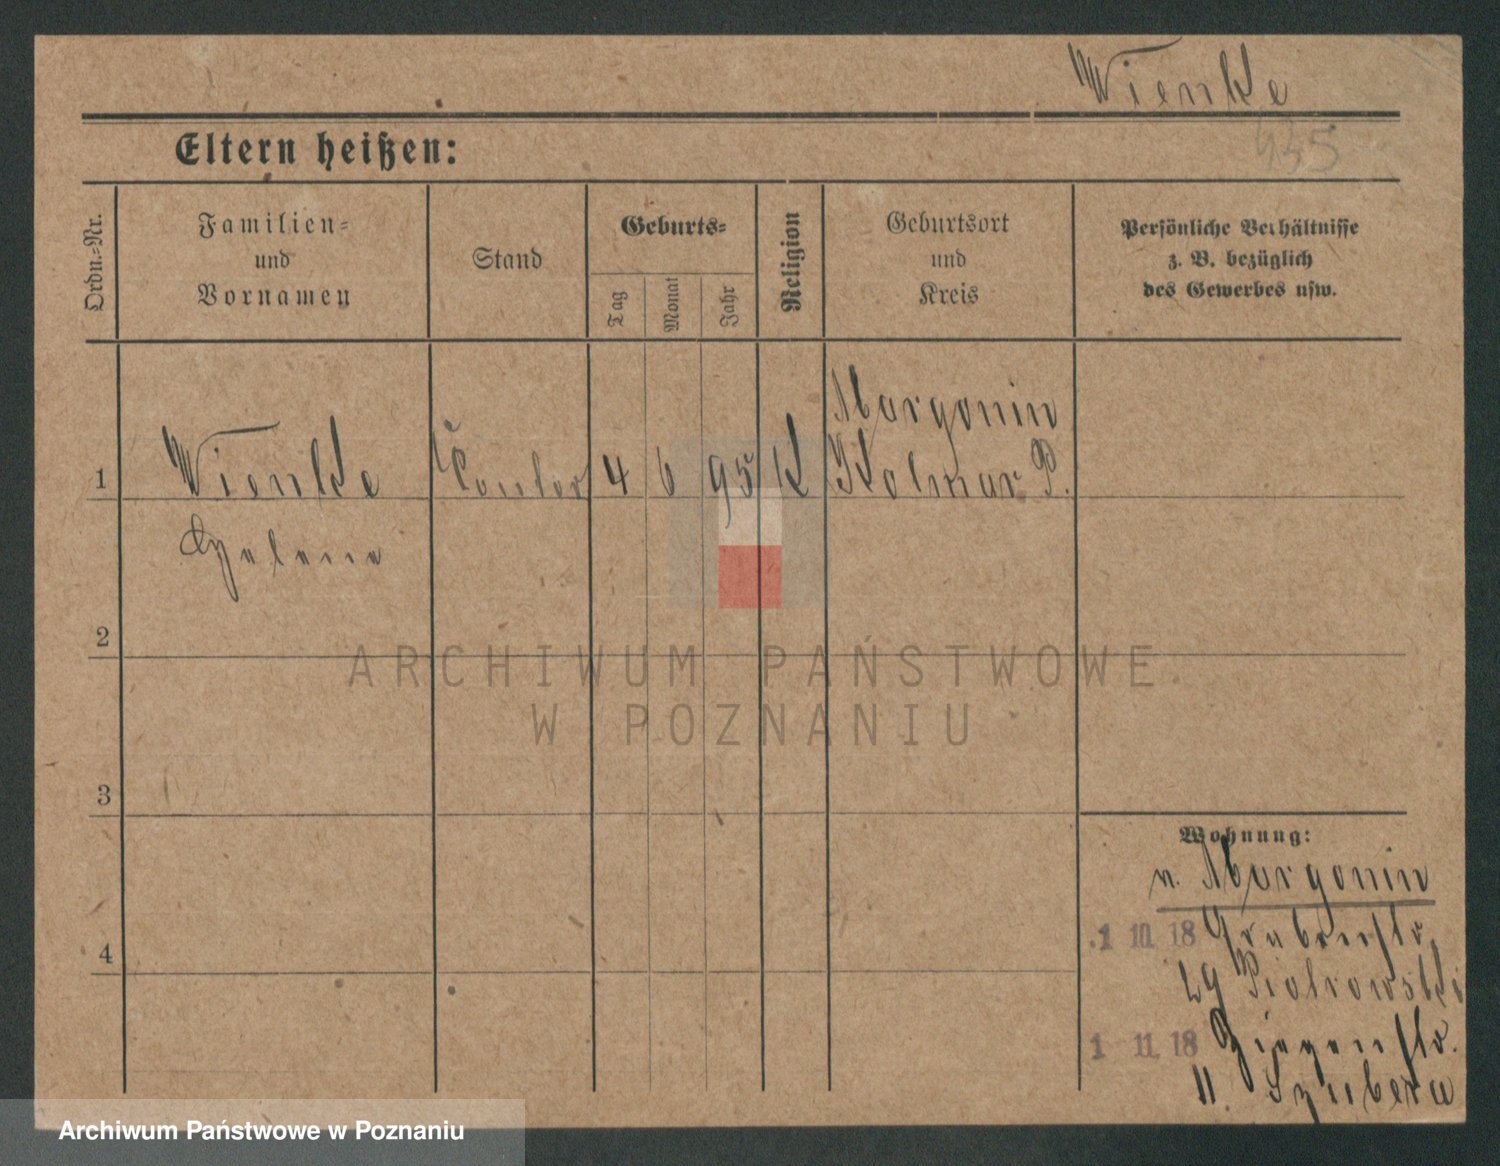 Wienke
435
Eltern heißen:
Ordn.-Nr.
Familien-
und
Vornamen
Stand
Geburts-
Tag
Monat
Jahr
Religion
Geburtsort
und
Kreis
Persönliche Verhältnisse
z. B. bezüglich
des Gewerbes usw.
1
Wienke
Helene
4
6
95
K
Margonin
Kolmar P.
2
3
4
Wohnung:
n. Margonin
1 10 18 Grabenstr.
29 Piotrowski
1 11 18 Ziegenstr.
11
ARCHIWUM PAŃSTWOWE
W POZNANIU
Archiwum Państwowe w Poznaniu